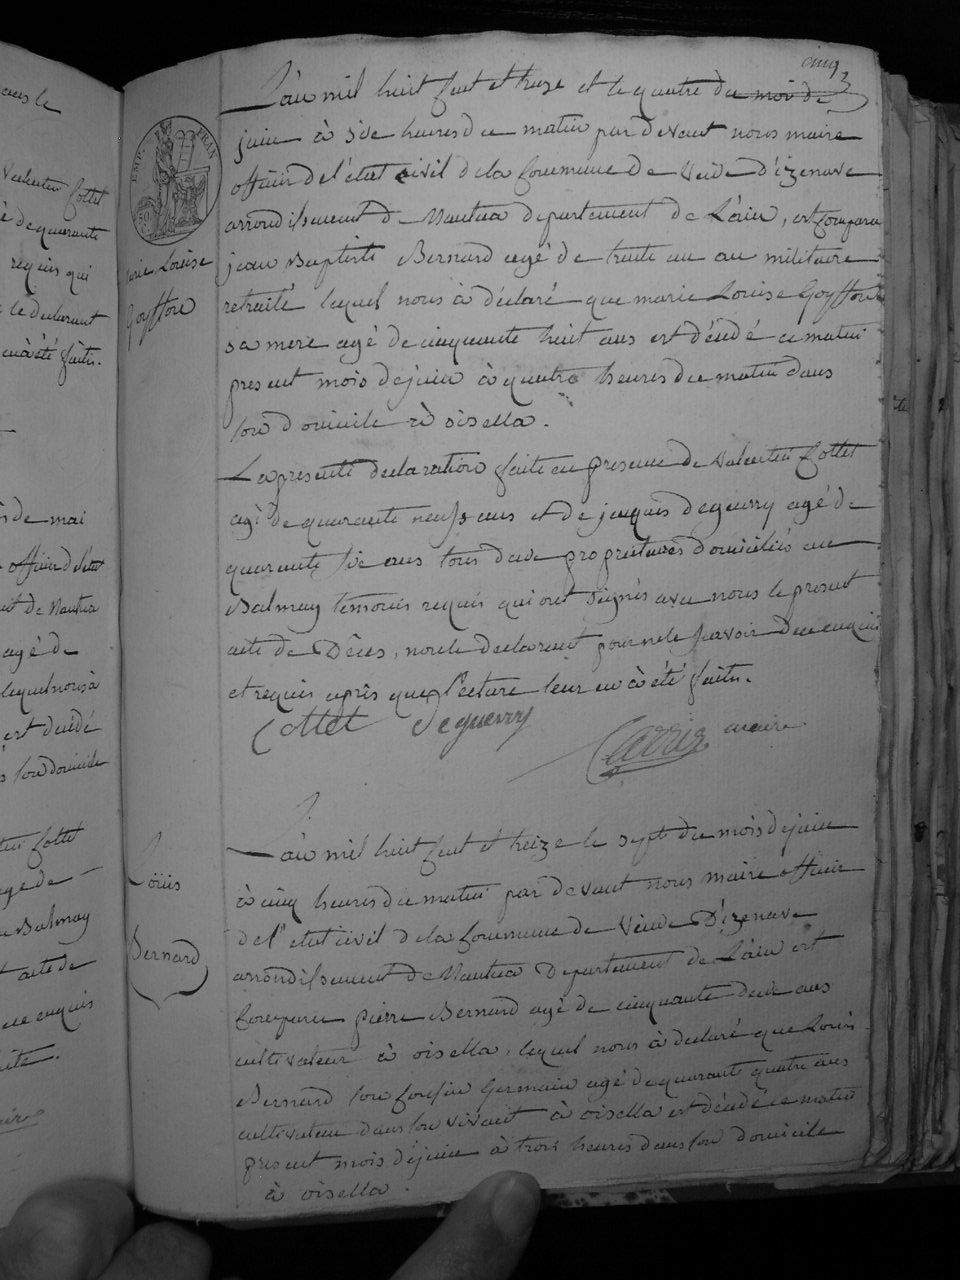 cinq
L'an mil huit cent et treze et le quatre du mois de
juin à side heures du matin par devant nous maire
officier de l'état civil de la commune de Vieude D'izenave
arrondissement de Nantua departement de L'ain, est comparu
jean Baptiste Bernard agé de trente un an militaire
retraité lequel nous à déclaré que marie Louise Goyffon
sa mere agé de cinquante huit ans est décédé ce matin
present mois de juin à quatre heures du matin dans
son domicile à oisella.
La presente declaration faite en presence de Valentin Cottet
agé de quarante neuf ans et de jacques deguerry agé de
quarante sie ans tous deux proprietaires domiciliés au
Balmay temoins requis qui ont signés avec nous le present
acte de Déces, non le declarant pour ne le sçavoir de ce enquis
et requis après que lecture leur en à été faite.
Cottet deguerry
Carrier maire
marie Louise
Goyffon
L'an mil huit cent et treize le sept du mois de juin
à cinq heures du matin par devant nous maire officier
de l'etat civil de la commune de Vieude D'izenave
arrondissement de Nantua Departement de L'ain est
comparu pierre Bernard agé de cinquante deux ans
cultivateur à oisella, lequel nous à declaré que Louis
Bernard son cousin Germain agé de quarante quatre ans
cultivateur dans son vivant à oisella est décédé ce matin
present mois de juin à trois heures dans son domicile
à oisella.
Loüis
Bernard
EMP. FRAN
Valentin Cottet
de quarante
requis qui
le declarant
en à été faite.
de mai
officier de l'etat
de Nantua
agé de
lequel nous à
est décédé
son domicile
Cottet
agé de
Balmay
acte de
ce enquis